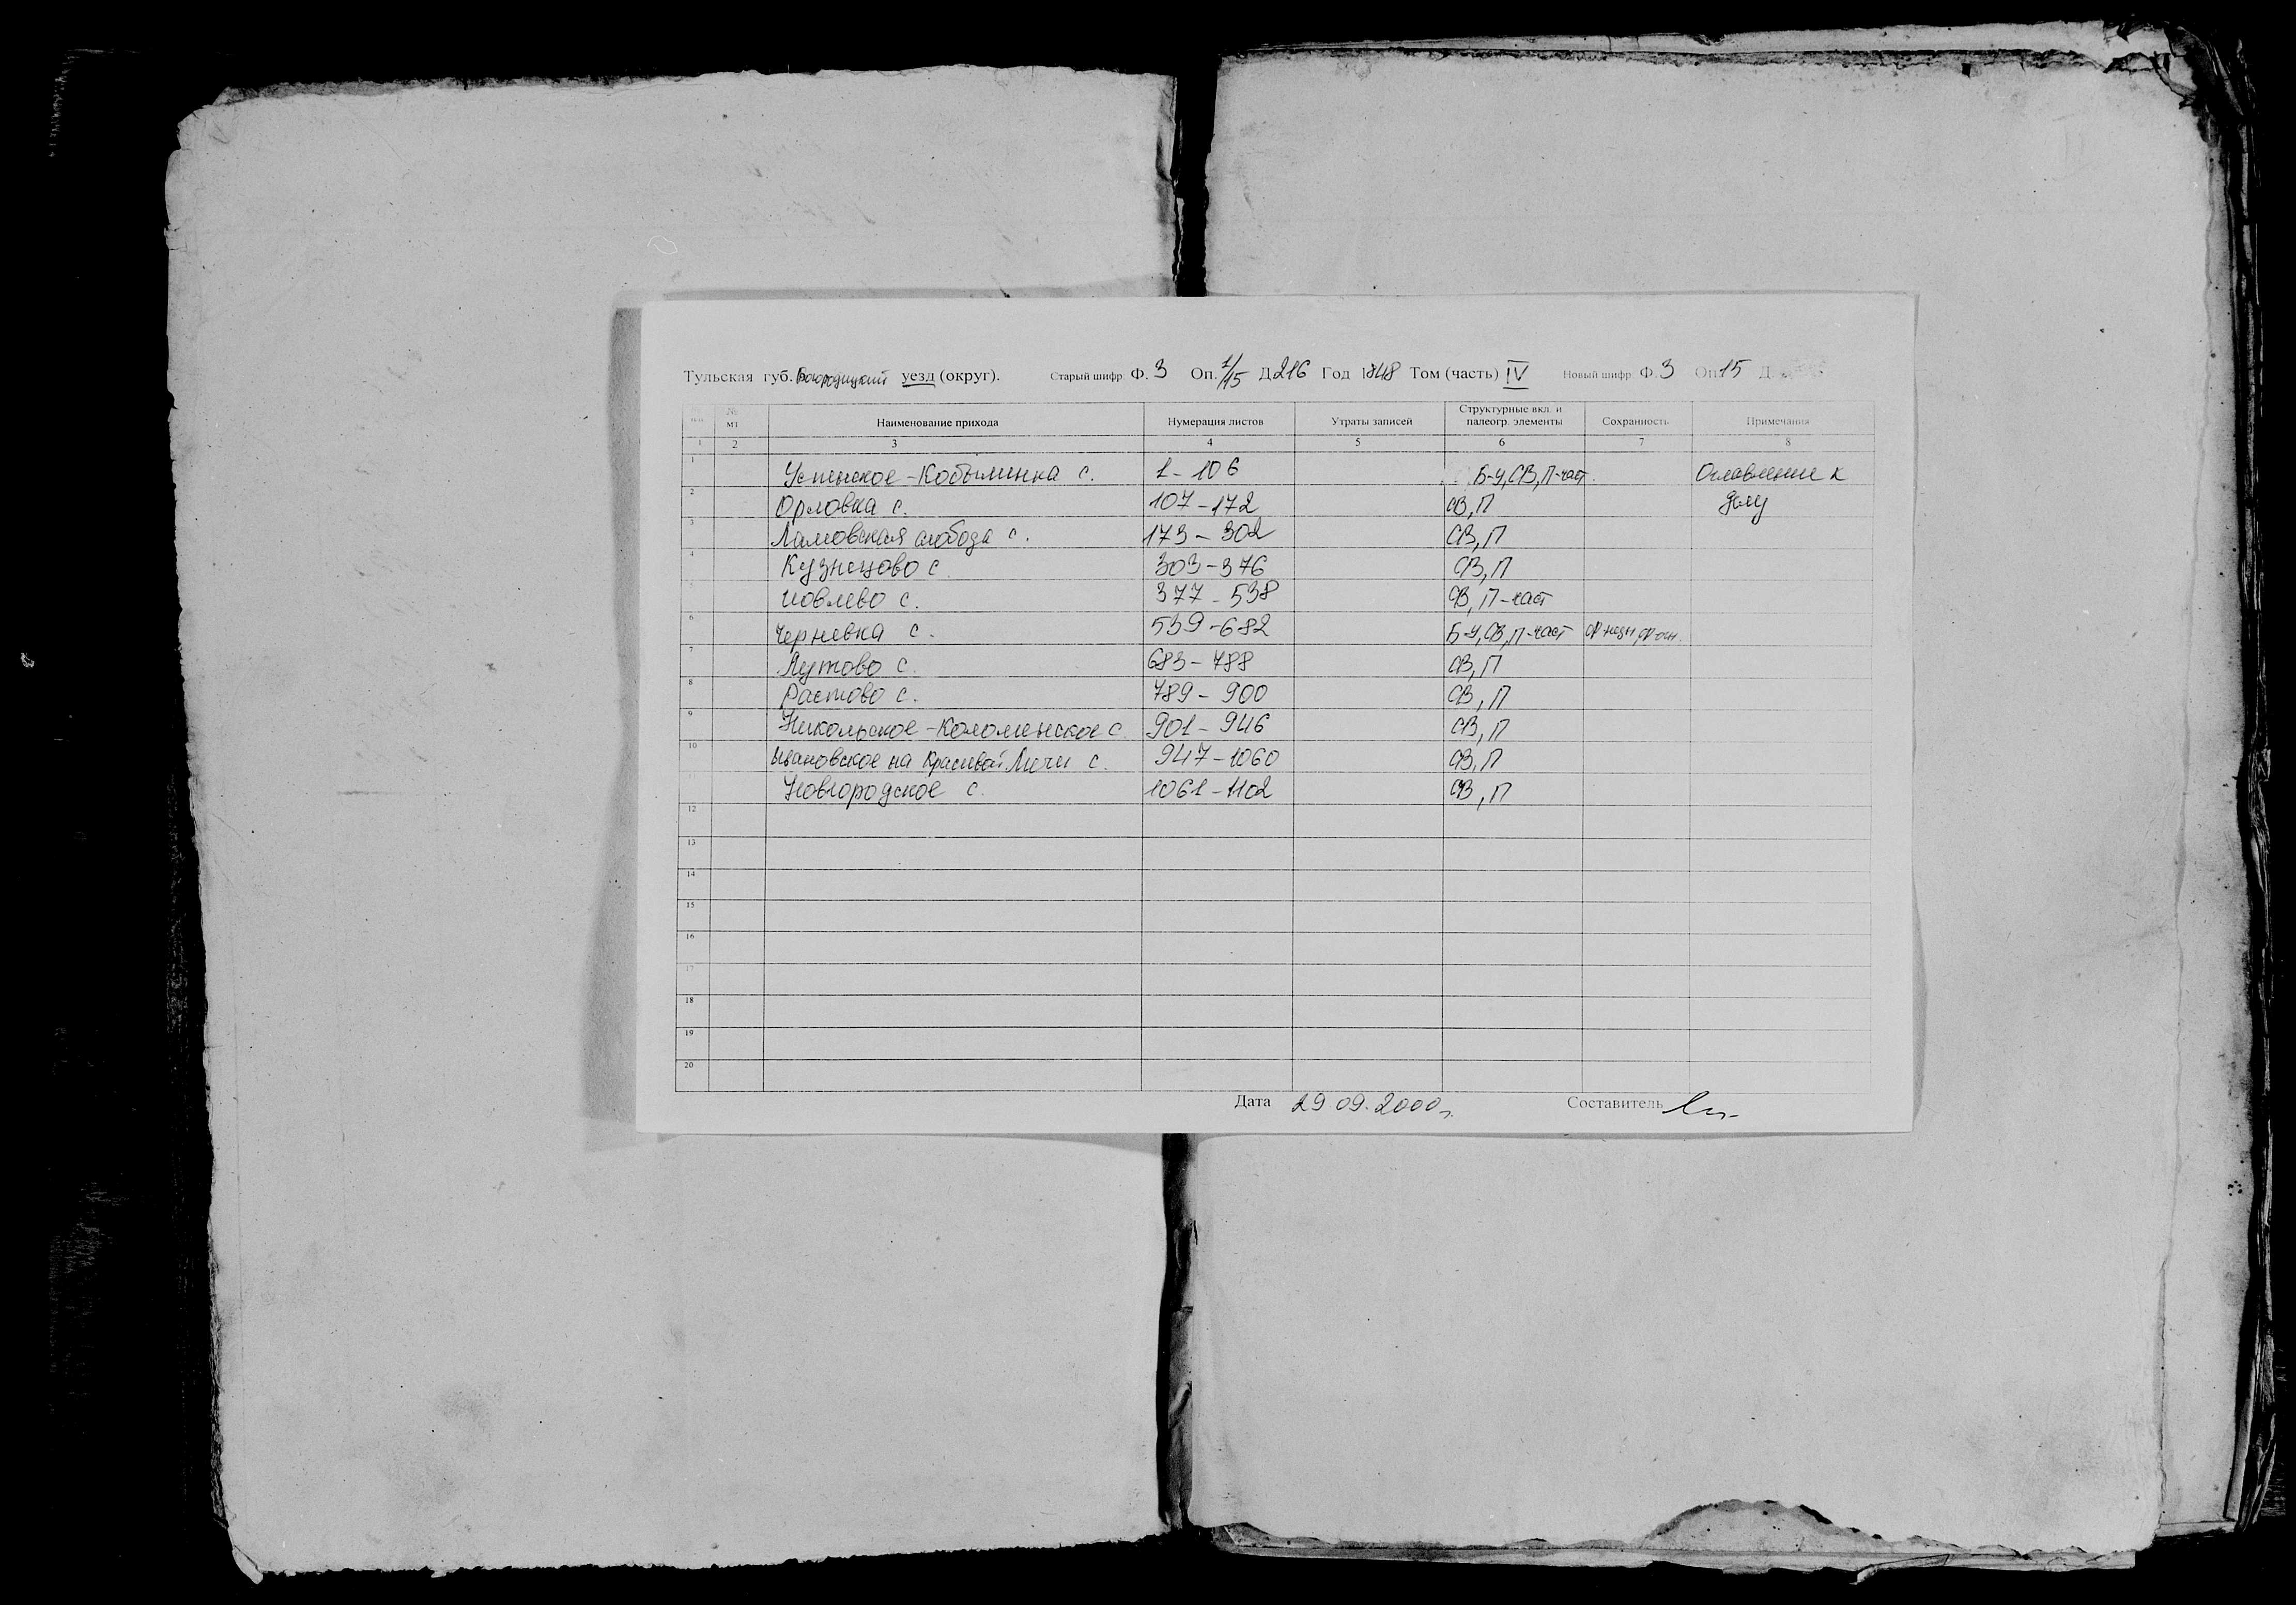 Тульская губ. Богородицкий уезд (округ). Старый шифр Ф. 3 Оп. 1/15 Д 216 Год 1848 Том (часть) IV Новый шифр Ф. 3 Оп 15 Д.
№ мт Наименование прихода Нумерация листов Утраты записей Структурные вкл. и палеогр. элементы Сохранность Примечания
1 2 3 4 5 6 7 8
1 Успенское-Кобылинка с. 1-106 Б-У, СВ, П-част. Оглавление к
2 Орловка с. 107-172 СВ, П делу
3 Ламовская слобода с. 173-302 СВ, П
4 Кузнецово с 303-376 СВ, П
Иовлево с. 377-538 СВ, П-част
6 Черневка с. 539-682 Б-У, СВ, П-част
7 Лутово с. 683-788 СВ, П
8 Растово с. 789-900 СВ, П
9 Никольское-Коломенское с. 901-946 СВ, П
10 Ивановское на Красивой Мечи с. 947-1060 СВ, П
Новгородское с. 1061-1102 СВ, П
12
13
14
15
16
17
18
19
20
Дата 29.09.2000г. Составитель